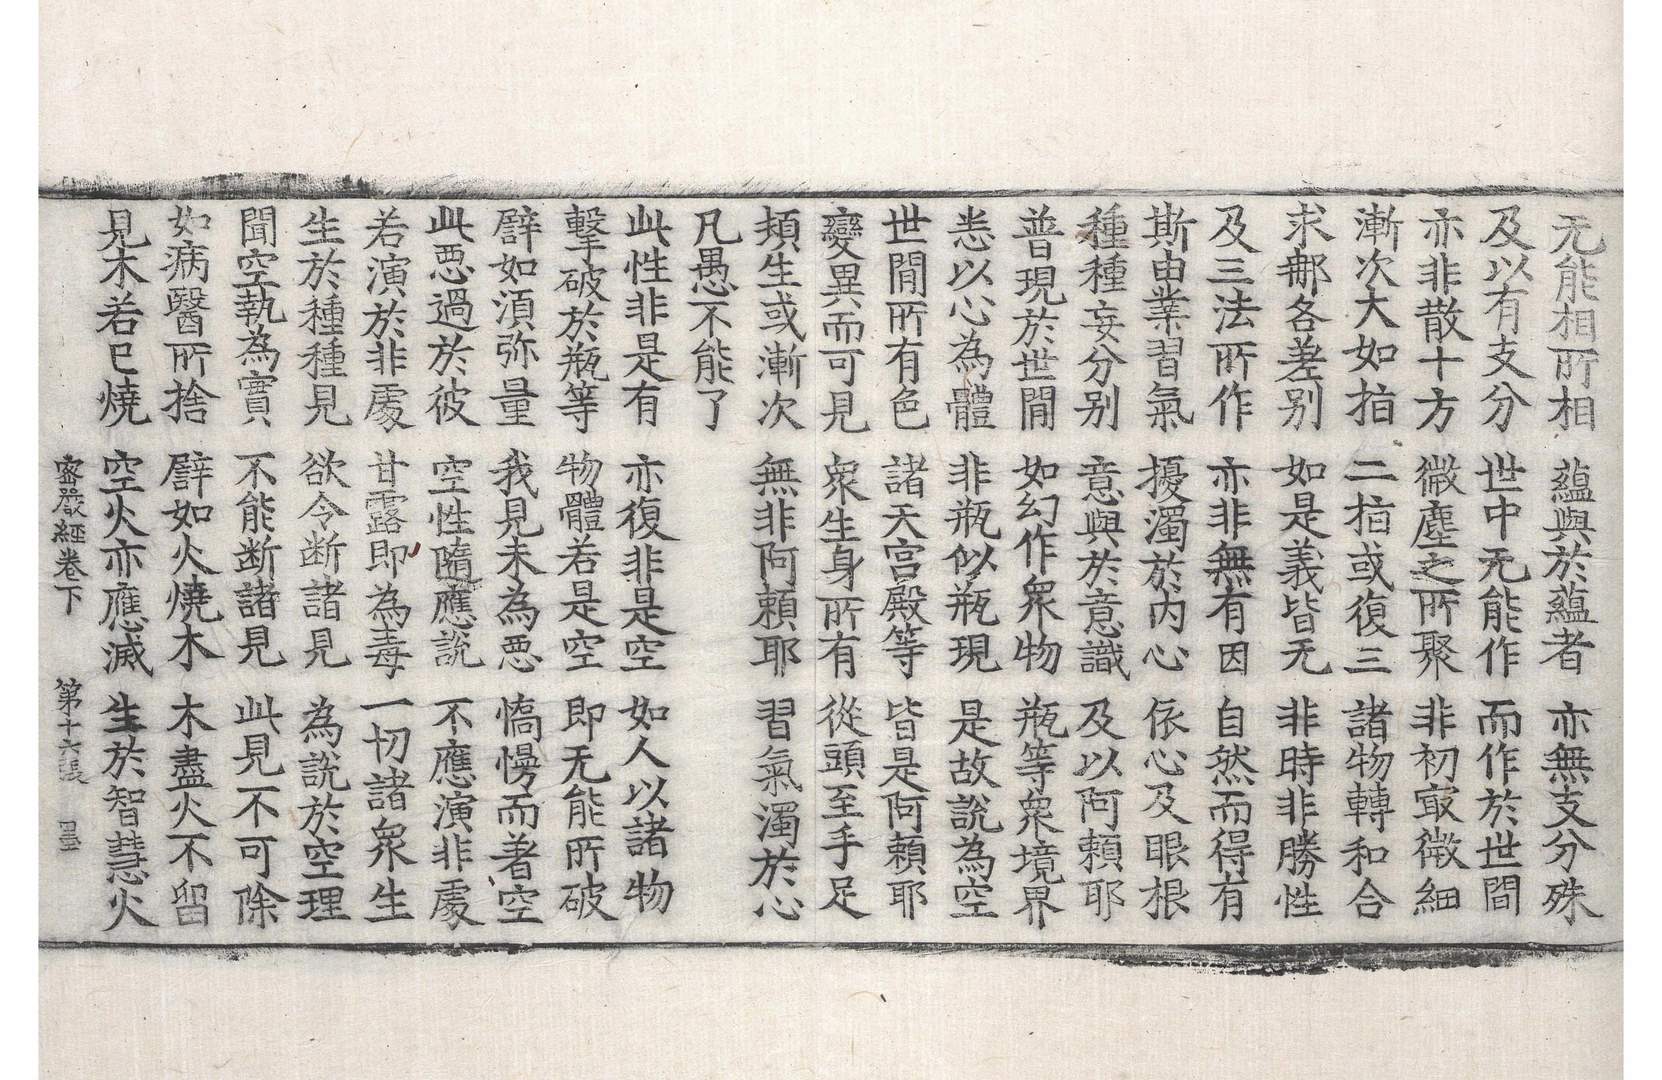 无能相所相 蘊與於蘊者 亦無支分殊
及以有支分 世中无能作 而作於世間
亦非散十方 微塵之所聚 非初㝡微細
漸次大如指 二指或復三 諸物轉和合
求郍各差别 如是義皆无 非時非勝性
及三法所作 亦非無有因 自然而得有
斯由業習氣 擾濁於内心 依心及眼根
種種妄分别 意與於意識 及以阿頼耶
普現於世間 如幻作衆物 瓶等衆境界
悉以心為體 非瓶似瓶現 是故說為空
世間所有色 諸天宫殿等 皆是阿頼耶
變異而可見 衆生身所有 從頭至手足
頬生或漸次 無非阿頼耶 習氣濁於心
凡愚不能了
此性非是有 亦復非是空 如人以諸物
擊破於瓶等 物體若是空 即无能所破
譬如湏弥量 我見未為惡 憍慢而著空
此惡過於彼 空性隨應說 不應演非處
若演於非處 甘露即為毒 一切諸衆生
生於種種見 欲令断諸見 為說於空理
聞空執為實 不能断諸見 此見不可除
如病醫所捨 譬如火燒木 木盡火不留
見木若已燒 空火亦應滅 生於智慧火
密嚴經卷下 第十六張 墨